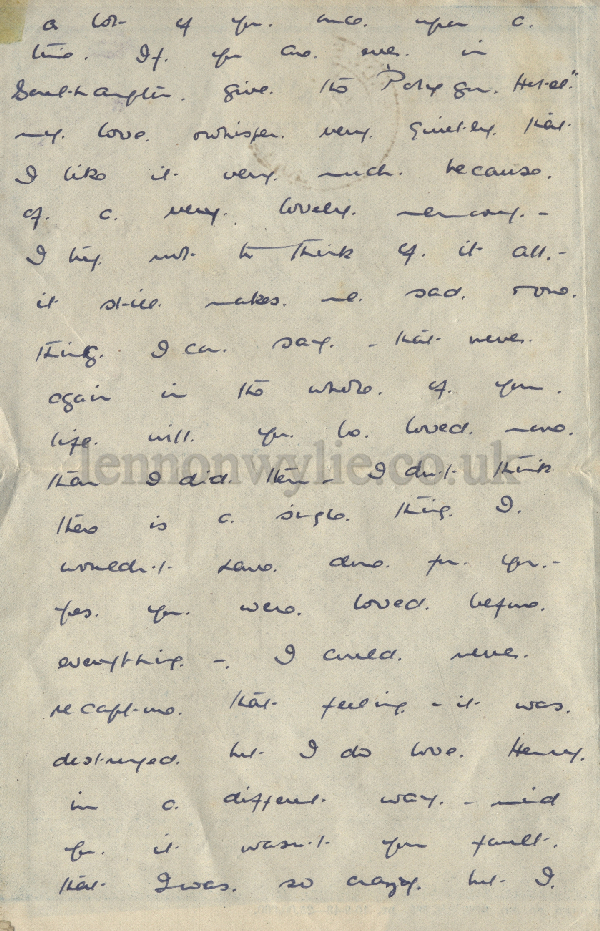 a lot of you. once. upon a.
time. If. you are. ever. in
Southampton. give. the "Polygon. Hotel."
my. love. whisper. very. quietly. that.
I like it very. much. because.
of. a. very. lovely. memory. -
I try. not. to think of. it all. -
it still. makes. me. sad. one.
thing. I can. say. - that never.
again in the whole. of. your.
life. will. you be. loved. more.
than I did. then - I don't think
there is a. single. thing. I.
wouldn't have. done. for you. -
yes. you. were. loved. before.
everything. -. I could. never.
recapture. that feeling - it was.
destroyed. but I do love. Henry.
in a. different. way. - mind
you. it wasn't your fault.
that. I was. so crazy. but I.
lennonwylie.co.uk